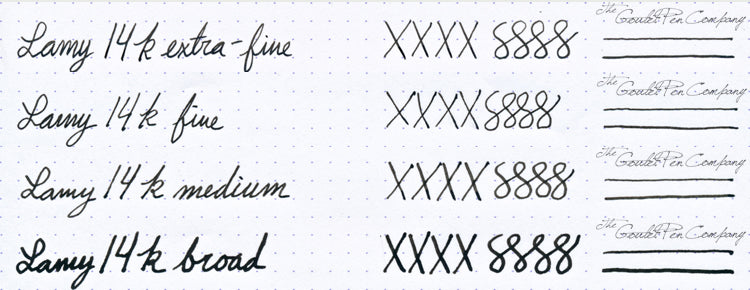 Lamy 14k extra-fine XXXX 8888 The Goulet Pen Company
Lamy 14k fine XXXX 8888 The Goulet Pen Company
Lamy 14k medium XXXX 8888 The Goulet Pen Company
Lamy 14k broad XXXX 8888 The Goulet Pen Company